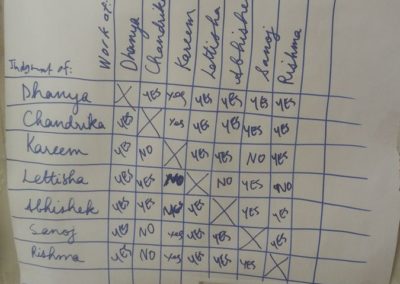 Work of: Dhanya Chandrika Kareem Lettisha Abhishek Sanoj Rishma
Judgment of:
Dhanya X YES Yes YES YES YES YES
Chandrika YES X Yes YES YES YES YES
Kareem YES NO X YES YES NO YES
Lettisha YES YES NO X NO YES NO
Abhishek YES YES YES X YES YES
Sanoj YES NO Yes YES YES X YES
Rishma YES NO Yes YES YES YES X